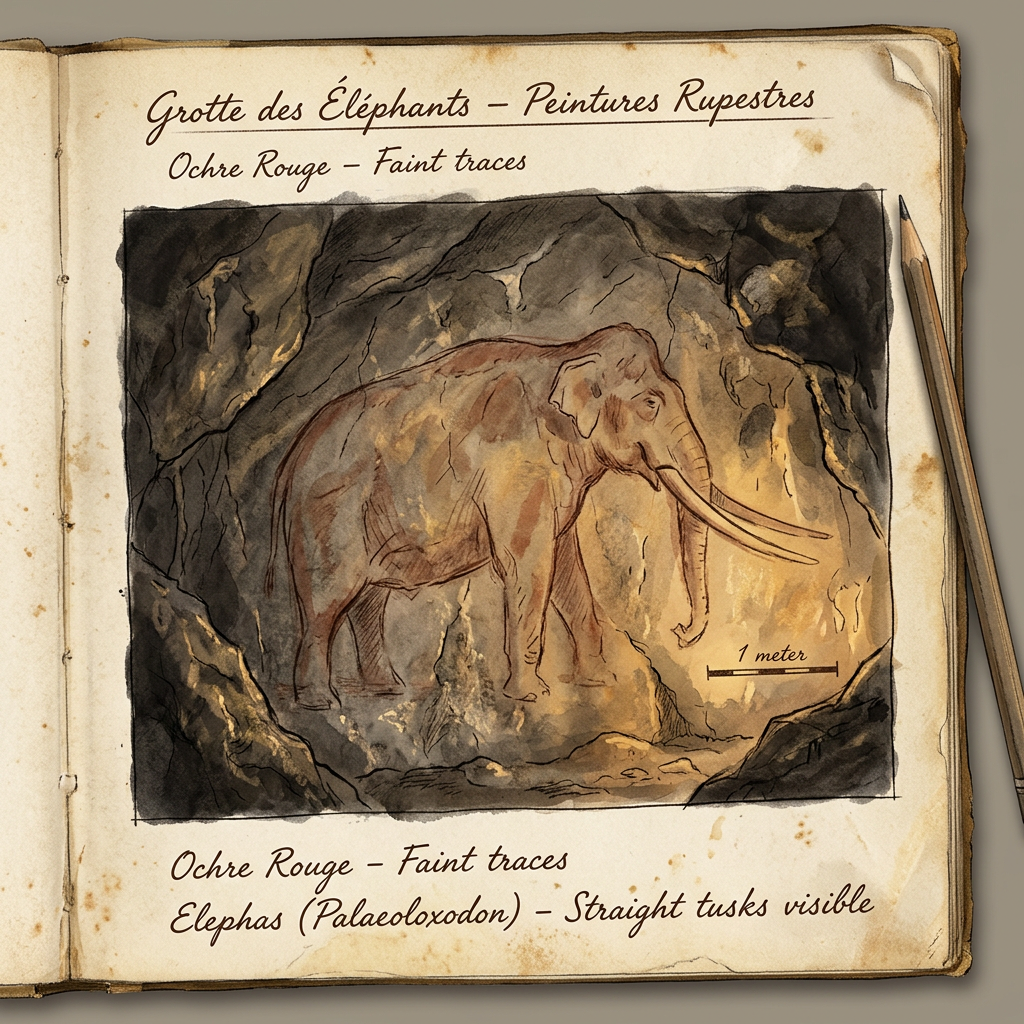 Grotte des Éléphants – Peintures Rupestres
Ochre Rouge – Faint traces
1 meter
Ochre Rouge – Faint traces
Elephas (Palaeoloxodon) – Straight tusks visible